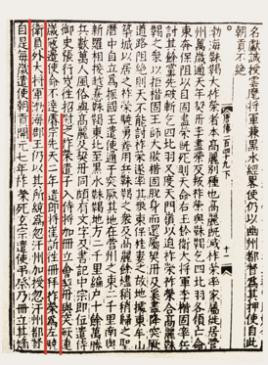 名獻誠授雲麾將軍兼黑水經略使仍以幽州都督為其押使自此
朝貢不絕
渤海靺鞨大祚榮者本高麗別種也高麗既滅祚榮率家屬徙居營
州萬歲通天年契丹李盡榮反叛祚榮與靺鞨乞四比羽各領亡命
東奔保阻以自固盡榮既死則天命右玉鈐衛大將軍李楷固率兵
討其餘黨先破斬乞四比羽又度天門嶺以迫祚榮祚榮合高麗靺
鞨之眾以拒楷固王師大敗楷固脫身而還屬契丹及奚盡降突厥
道路阻絕則天不能討祚榮遂率其眾東保桂婁之故地據東牟山
築城以居之祚榮驍勇善用兵靺鞨之眾及高麗餘燼稍稍歸之聖
曆中自立為振國王遣使通于突厥其地在營州之東二千里南與
新羅相接越憙靺鞨東北至黑水靺鞨地方二千里編戶十餘萬勝
兵數萬人風俗與高麗及契丹同頗有文字及書記中宗即位遣侍
御史張行岌往招慰之祚榮遣子入侍將加冊立會契丹與突厥連
歲寇邊使命不達睿宗先天二年遣郎將崔訢往冊拜祚榮為左驍
衛員外大將軍渤海郡王仍以其所統為忽汗州加授忽汗州都督
自是每歲遣使朝貢開元七年祚榮死玄宗遣使弔祭乃冊立其嫡